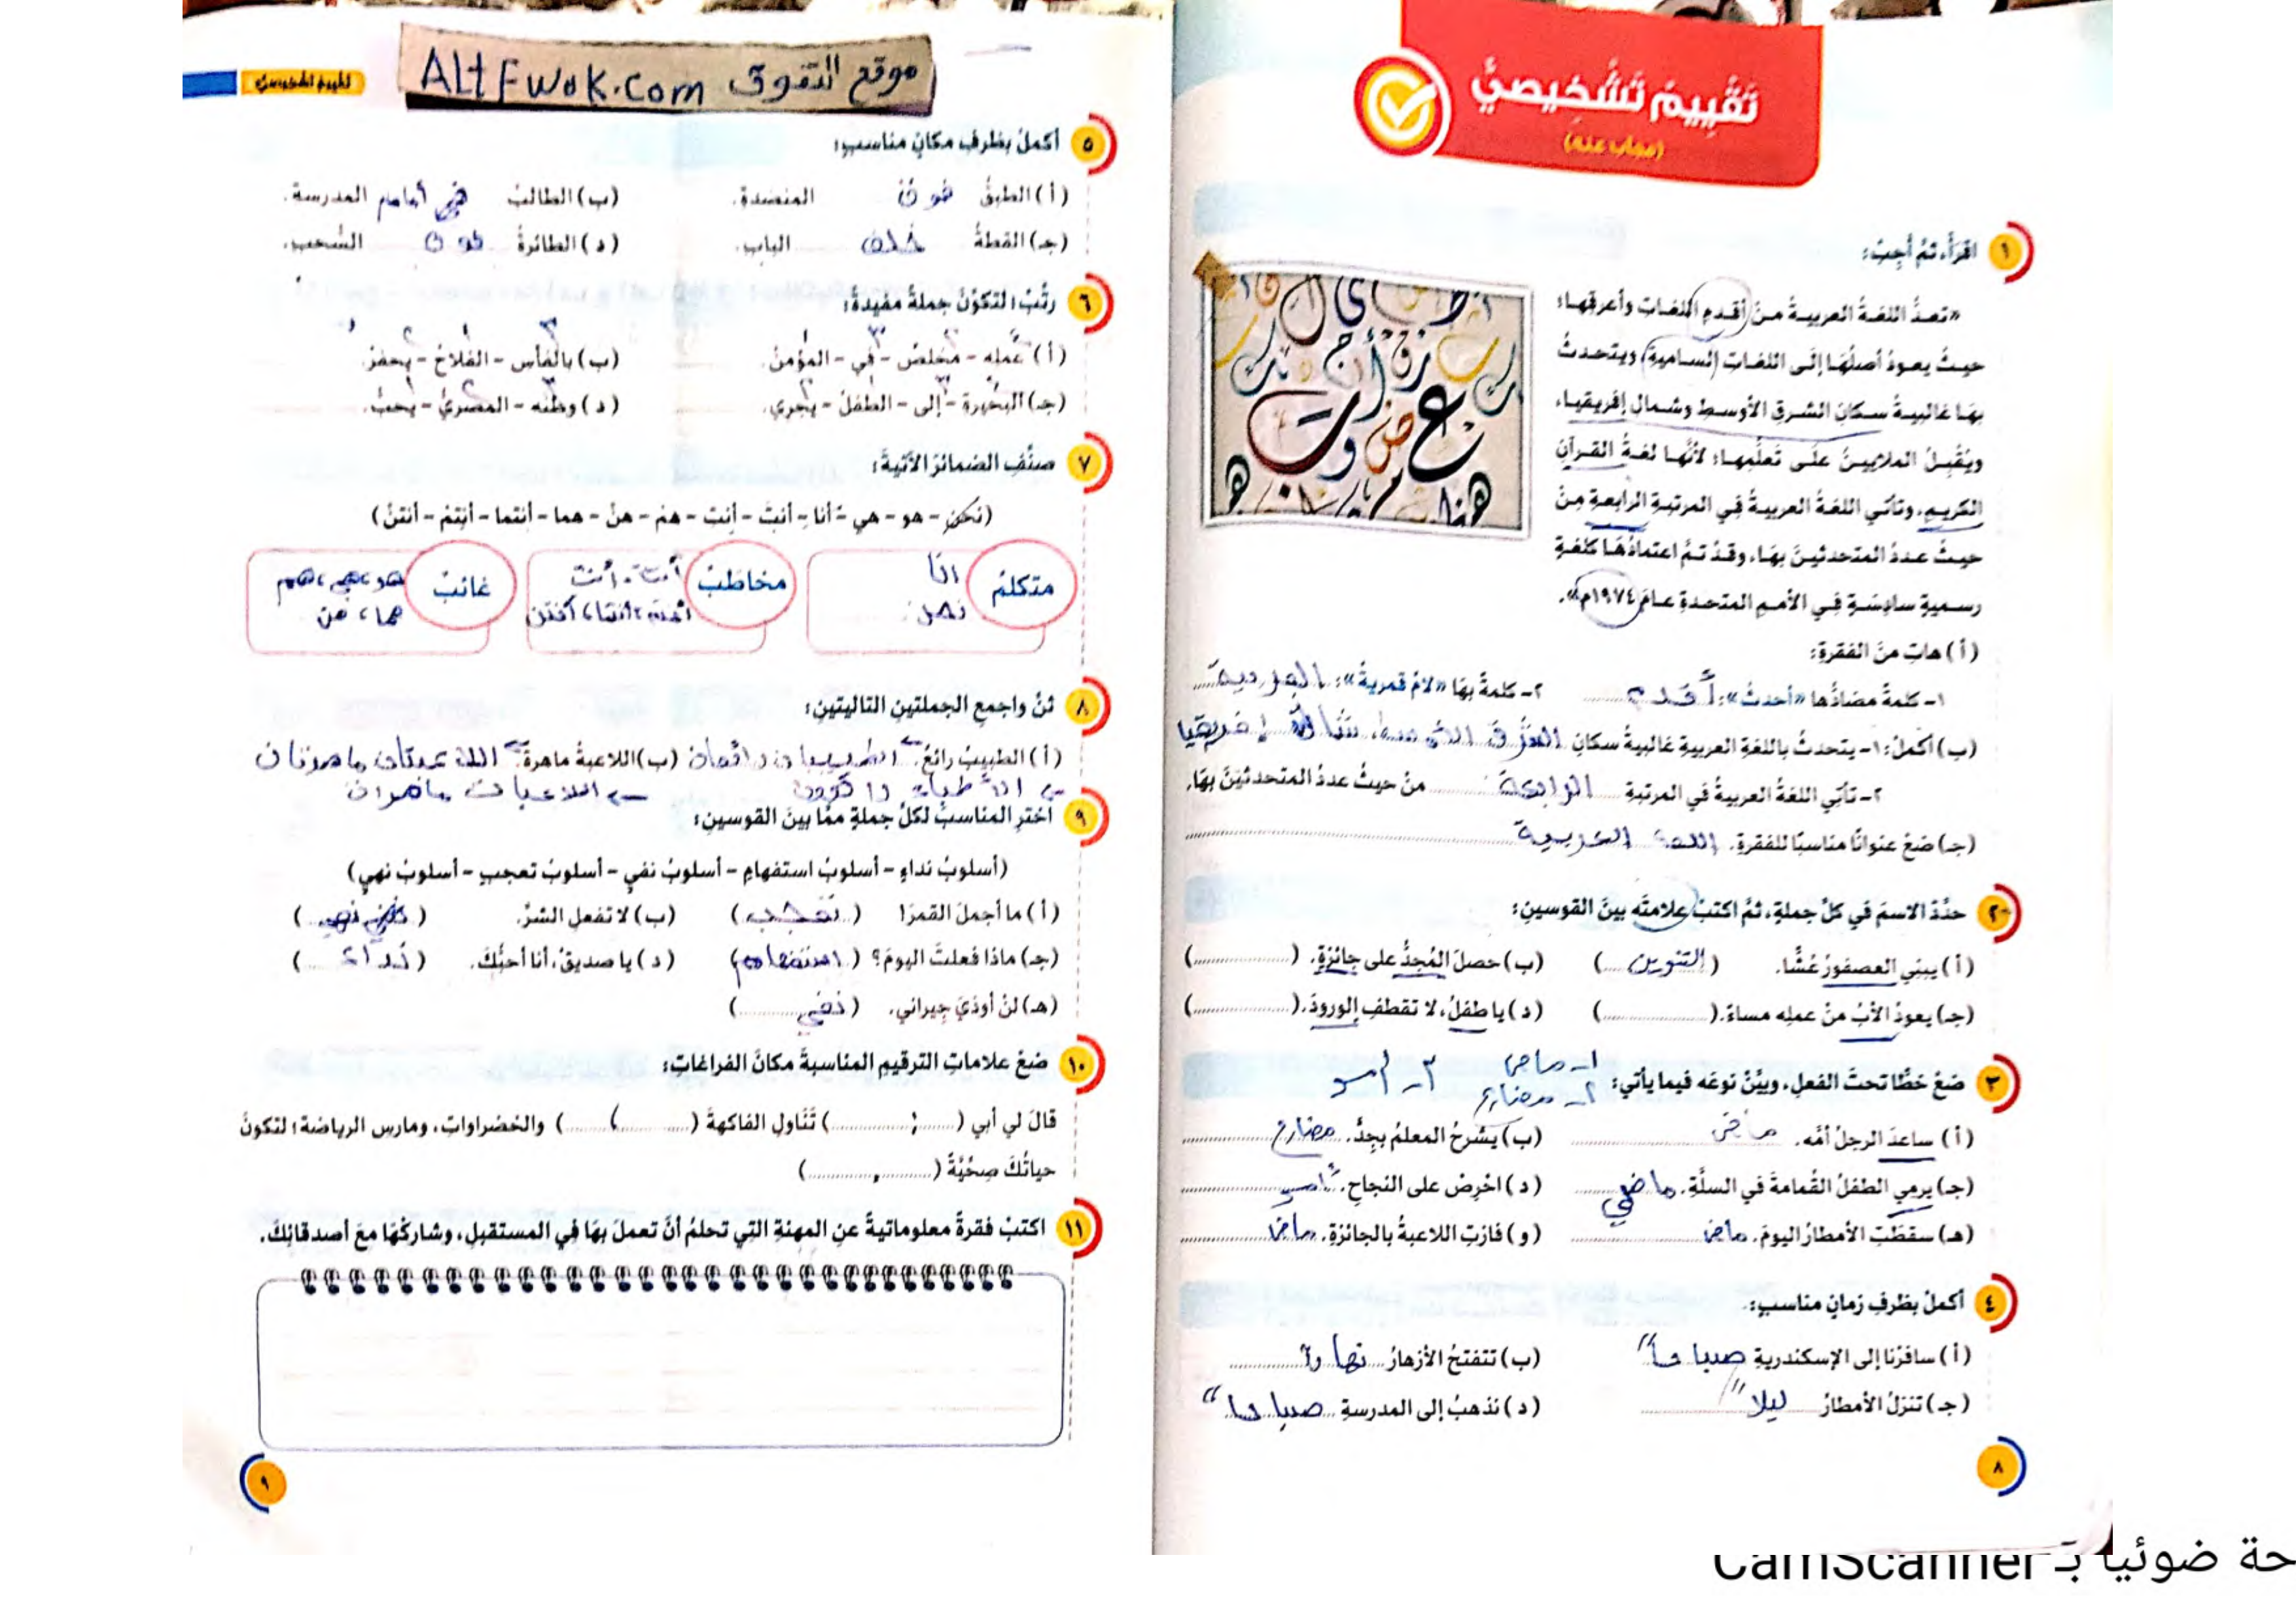 تَقْيِيمٌ تَشْخِيصِيٌّ
(مجاب عنه)
١ اقرأ، ثمَّ أجِبْ:
«تعدُّ اللغةُ العربيةُ منْ أقدمِ اللغاتِ وأعرقِها؛
حيثُ يعودُ أصلُهَا إلَى اللغاتِ الساميةِ، ويتحدثُ
بهَا غالبيةُ سكانِ الشرقِ الأوسطِ وشمالِ إفريقيا،
ويُقْبِلُ الملايينُ علَى تَعلُّمِهَا؛ لأنَّهَا لغةُ القرآنِ
الكريمِ، وتأتي اللغةُ العربيةُ فِي المرتبةِ الرابعةِ مِنْ
حيثُ عددُ المتحدثينَ بهَا، وقدْ تمَّ اعتمادُهَا كلغةٍ
رسميةٍ سادسةٍ فِي الأممِ المتحدةِ عامَ ١٩٧٤م».
(أ) هاتِ منَ الفقرةِ:
١- كلمةً مضادُّها «أحدث»: أقدم ٢- كلمةً بهَا «لامٌ قمريةٌ»: العربية
(ب) أكملْ: ١- يتحدثُ باللغةِ العربيةِ غالبيةُ سكانِ الشرق الأوسط، شمال إفريقيا
٢- تأتِي اللغةُ العربيةُ في المرتبةِ الرابعة منْ حيثُ عددُ المتحدثينَ بهَا.
(جـ) ضعْ عنوانًا مناسبًا للفقرةِ. اللغة العربية
٢ حدِّدْ الاسمَ في كلِّ جملةٍ، ثمَّ اكتبْ علامتَه بينَ القوسينِ:
(أ) يبنِي العصفورُ عُشًّا. (التنوين) (ب) حصلَ المُجِدُّ على جائزةٍ. (............)
(جـ) يعودُ الأبُ منْ عملِه مساءً. (............) (د) يا طفلُ، لا تقطفِ الورودَ. (............)
١- ماض ٣- أمر
٣ ضعْ خطًّا تحتَ الفعلِ، وبيِّنْ نوعَه فيما يأتي: ٢- مضارع
(أ) ساعدَ الرجلُ أمَّه. ماض (ب) يشرحُ المعلمُ بجِدٍّ. مضارع
(جـ) يرمِي الطفلُ القُمامةَ في السلَّةِ. ماضي (د) احْرِصْ على النجاحِ. أمر
(هـ) سقطَتِ الأمطارُ اليومَ. ماض (و) فازتِ اللاعبةُ بالجائزةِ. ماض
٤ أكملْ بظرفِ زمانٍ مناسبٍ:
(أ) سافرْنا إلى الإسكندريةِ صباحاً (ب) تتفتحُ الأزهارُ نهارا
(جـ) تنزلُ الأمطارُ ليلاً (د) نذهبُ إلى المدرسةِ صباحاً
٨
موقع التفوق ALtFwok.com
تقييم تشخيصي
٥ أكملْ بظرفِ مكانٍ مناسبٍ:
(أ) الطبقُ فوق المنضدةِ. (ب) الطالبُ أمام المدرسةِ.
(جـ) القطةُ خلف البابِ. (د) الطائرةُ فوق السُّحبِ.
٦ رتِّبْ؛ لتكوِّنَ جملةً مفيدةً:
(أ) عملِه - مخلصٌ - في - المؤمنُ. (ب) بالفأسِ - الفلاحُ - يحفرُ.
(جـ) البحيرةِ - إلى - الطفلُ - يجري. (د) وطنَه - المصريُّ - يحبُّ.
٧ صنِّفِ الضمائرَ الآتيةَ:
(نحنُ - هو - هي - أنا - أنتَ - أنتِ - هم - هنَّ - هما - أنتما - أنتمْ - أنتنَّ)
متكلمٌ أنا نحن
مخاطَبٌ أنتَ، أنتِ أنتم، أنتما، أنتن
غائبٌ هو، هي، هم هما، هن
٨ ثنِّ واجمعِ الجملتينِ التاليتينِ:
(أ) الطبيبُ رائعٌ. الطبيبان رائعان (ب) اللاعبةُ ماهرةٌ. اللاعبتان ماهرتان
الأطباء رائعون اللاعبات ماهرات
٩ اخترِ المناسبَ لكلِّ جملةٍ ممَّا بينَ القوسينِ:
(أسلوبُ نداءٍ - أسلوبُ استفهامٍ - أسلوبُ نفيٍ - أسلوبُ تعجبٍ - أسلوبُ نهيٍ)
(أ) ما أجملَ القمرَ! (تعجب) (ب) لا تفعلِ الشرَّ. (نهي)
(جـ) ماذا فعلتَ اليومَ؟ (استفهام) (د) يا صديقُ، أنا أحبُّكَ. (نداء)
(هـ) لنْ أوذيَ جيراني. (نفي)
١٠ ضعْ علاماتِ الترقيمِ المناسبةَ مكانَ الفراغاتِ:
قالَ لي أبي (......:......) تَنَاوَلِ الفاكهةَ (......،......) والخضراواتِ، ومارسِ الرياضةَ؛ لتكونَ
حياتُكَ صِحِّيَّةً (.............)
١١ اكتبْ فقرةً معلوماتيةً عنِ المهنةِ التِي تحلمُ أنْ تعملَ بهَا فِي المستقبلِ، وشاركْهَا معَ أصدقائِكَ.
٩
حة ضوئيا بـ CamScanner